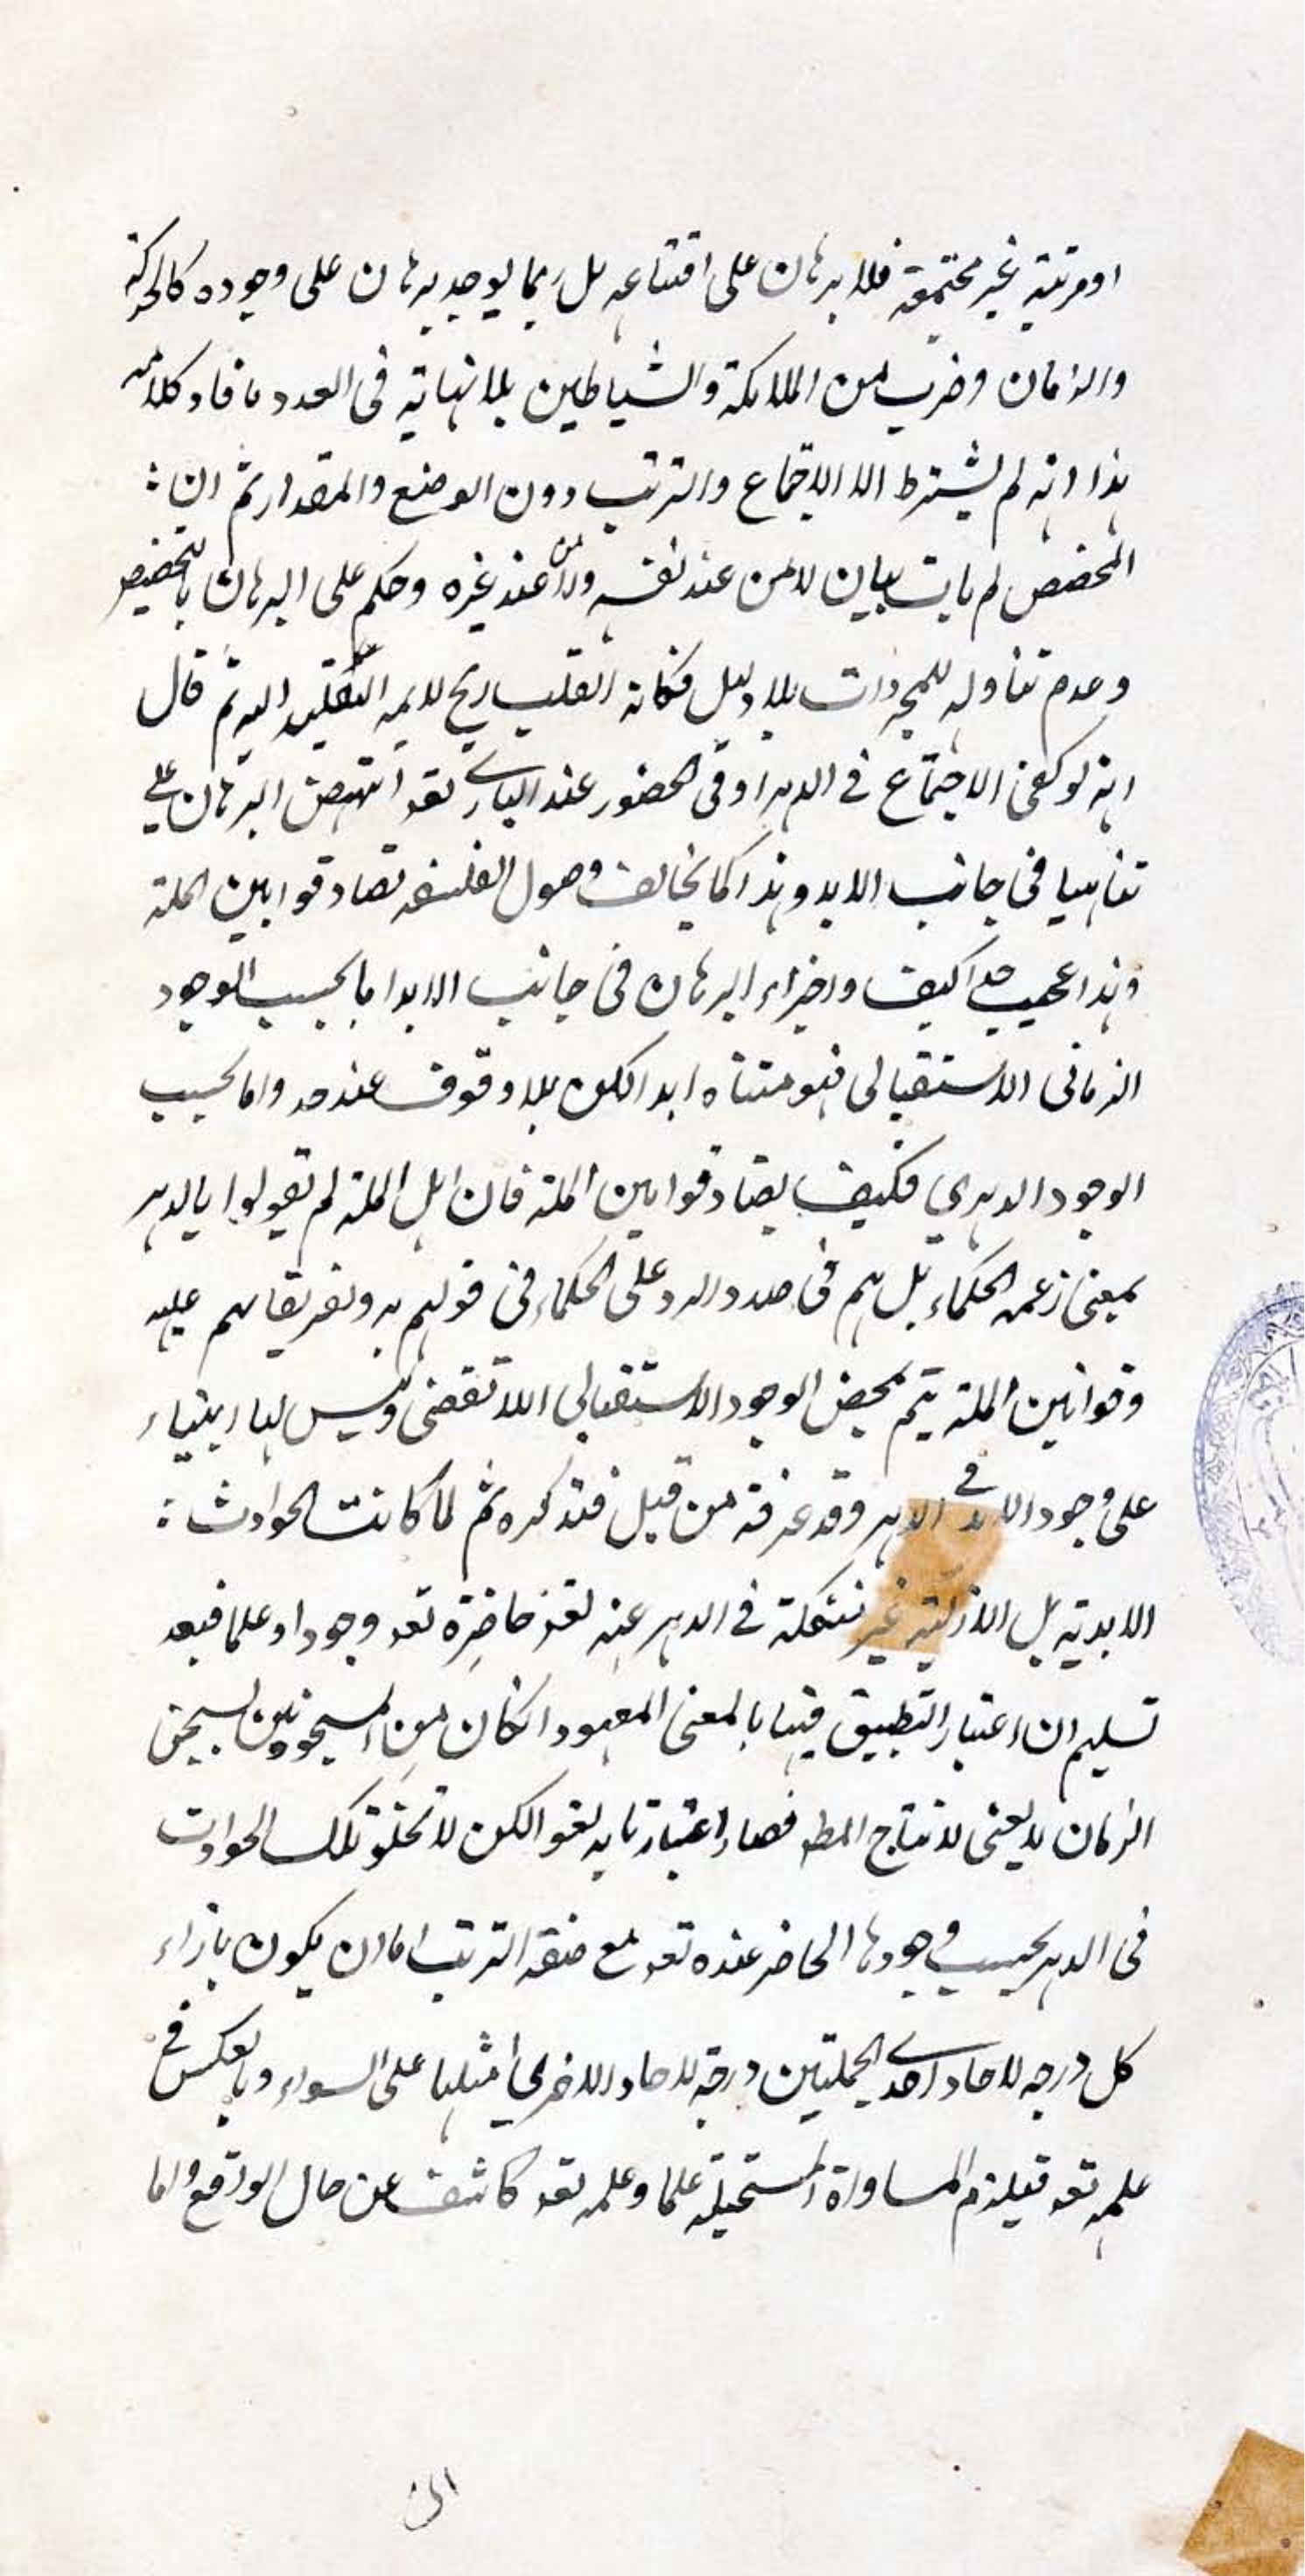 او مرتبة غير مجتمعة فلا برهان على امتناعه بل ربما يوجد برهان على وجوده كالحركة
والزمان وضرب من الملايكة والشياطين بلا نهاية فى العدد فافاد كلامه
هذا انه لم يشترط الا الاجتماع والترتب دون الوضع والمقدار ثم ان
المخصص لم يات ببيان لا من عند نفسه ولا من عند غيره وحكم على البرهان بالتخصيص
وعدم تناوله للمجردات بلا دليل فكانه انقلب ريح لايمه التقليد اليه ثم قال
انه لو كفى الاجتماع فى الدهر او فى الحضور عند البارى تعه انتهض البرهان على
تناهيها فى جانب الابد وهذا كما يخالف اصول الفلسفه تصادم قوانين الملة
وهذا عجيب جدا كيف واجزاء البرهان فى جانب الابد اما بحسب الوجود
الزمانى الاستقبالى فهو متناه ابدا لكن بلا وقوف عند حد واما بحسب
الوجود الدهري فكيف يصادم قوانين الملة فان اهل الملة لم يقولوا بالدهر
بمعنى زعمه الحكماء بل هم فى صدد الرد على الحكماء فى قولهم به وتفريقاتهم عليه
وقوانين الملة يتم بمحض الوجود الاستقبالى اللا تقضى وليس لها ابتناء
على وجود الابد فى الدهر وقد عرفته من قبل فتذكره ثم لما كانت الحوادث
الابدية بل الازلية غير فى الدهر عنه تعه حاضرة تعه وجودا وعلما فبعد
تسليم ان اعتبار التطبيق فيها بالمعنى المعهود ان كان من المسجونين بسجن
الزمان لا يعنى لانتاج المط فصار اعتبارنا به لغوا لكن لا تخلو تلك الحوادث
فى الدهر بحسب وجودها الحاضر عنده تعه مع صفة الترتب اما ان يكون بازاء
كل درجه لاحاد احدى الجملتين درجة لاحاد الاخرى مثلها على السواء وبالعكس فى
علمه تعه فيلزم المساواة المستحيلة علما وعلمه تعه كاشف عن حال الواقع واما